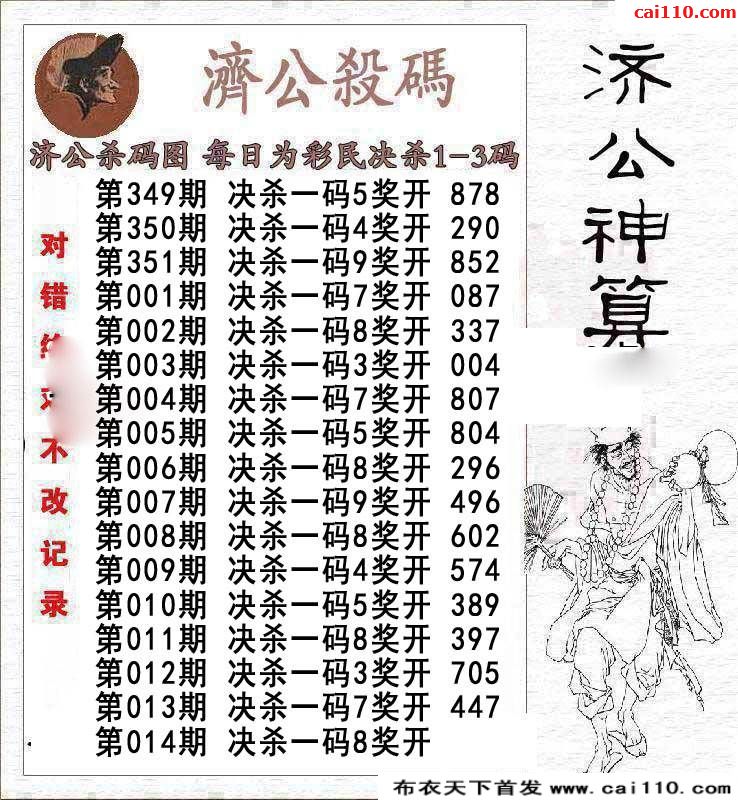 cai110.com
濟公殺碼
济公杀码图 每日为彩民决杀1-3码
第349期 决杀一码5奖开 878
第350期 决杀一码4奖开 290
第351期 决杀一码9奖开 852
第001期 决杀一码7奖开 087
第002期 决杀一码8奖开 337
第003期 决杀一码3奖开 004
第004期 决杀一码7奖开 807
第005期 决杀一码5奖开 804
第006期 决杀一码8奖开 296
第007期 决杀一码9奖开 496
第008期 决杀一码8奖开 602
第009期 决杀一码4奖开 574
第010期 决杀一码5奖开 389
第011期 决杀一码8奖开 397
第012期 决杀一码3奖开 705
第013期 决杀一码7奖开 447
第014期 决杀一码8奖开
对错不改记录
济公神算
布衣天下首发 www.cai110.com